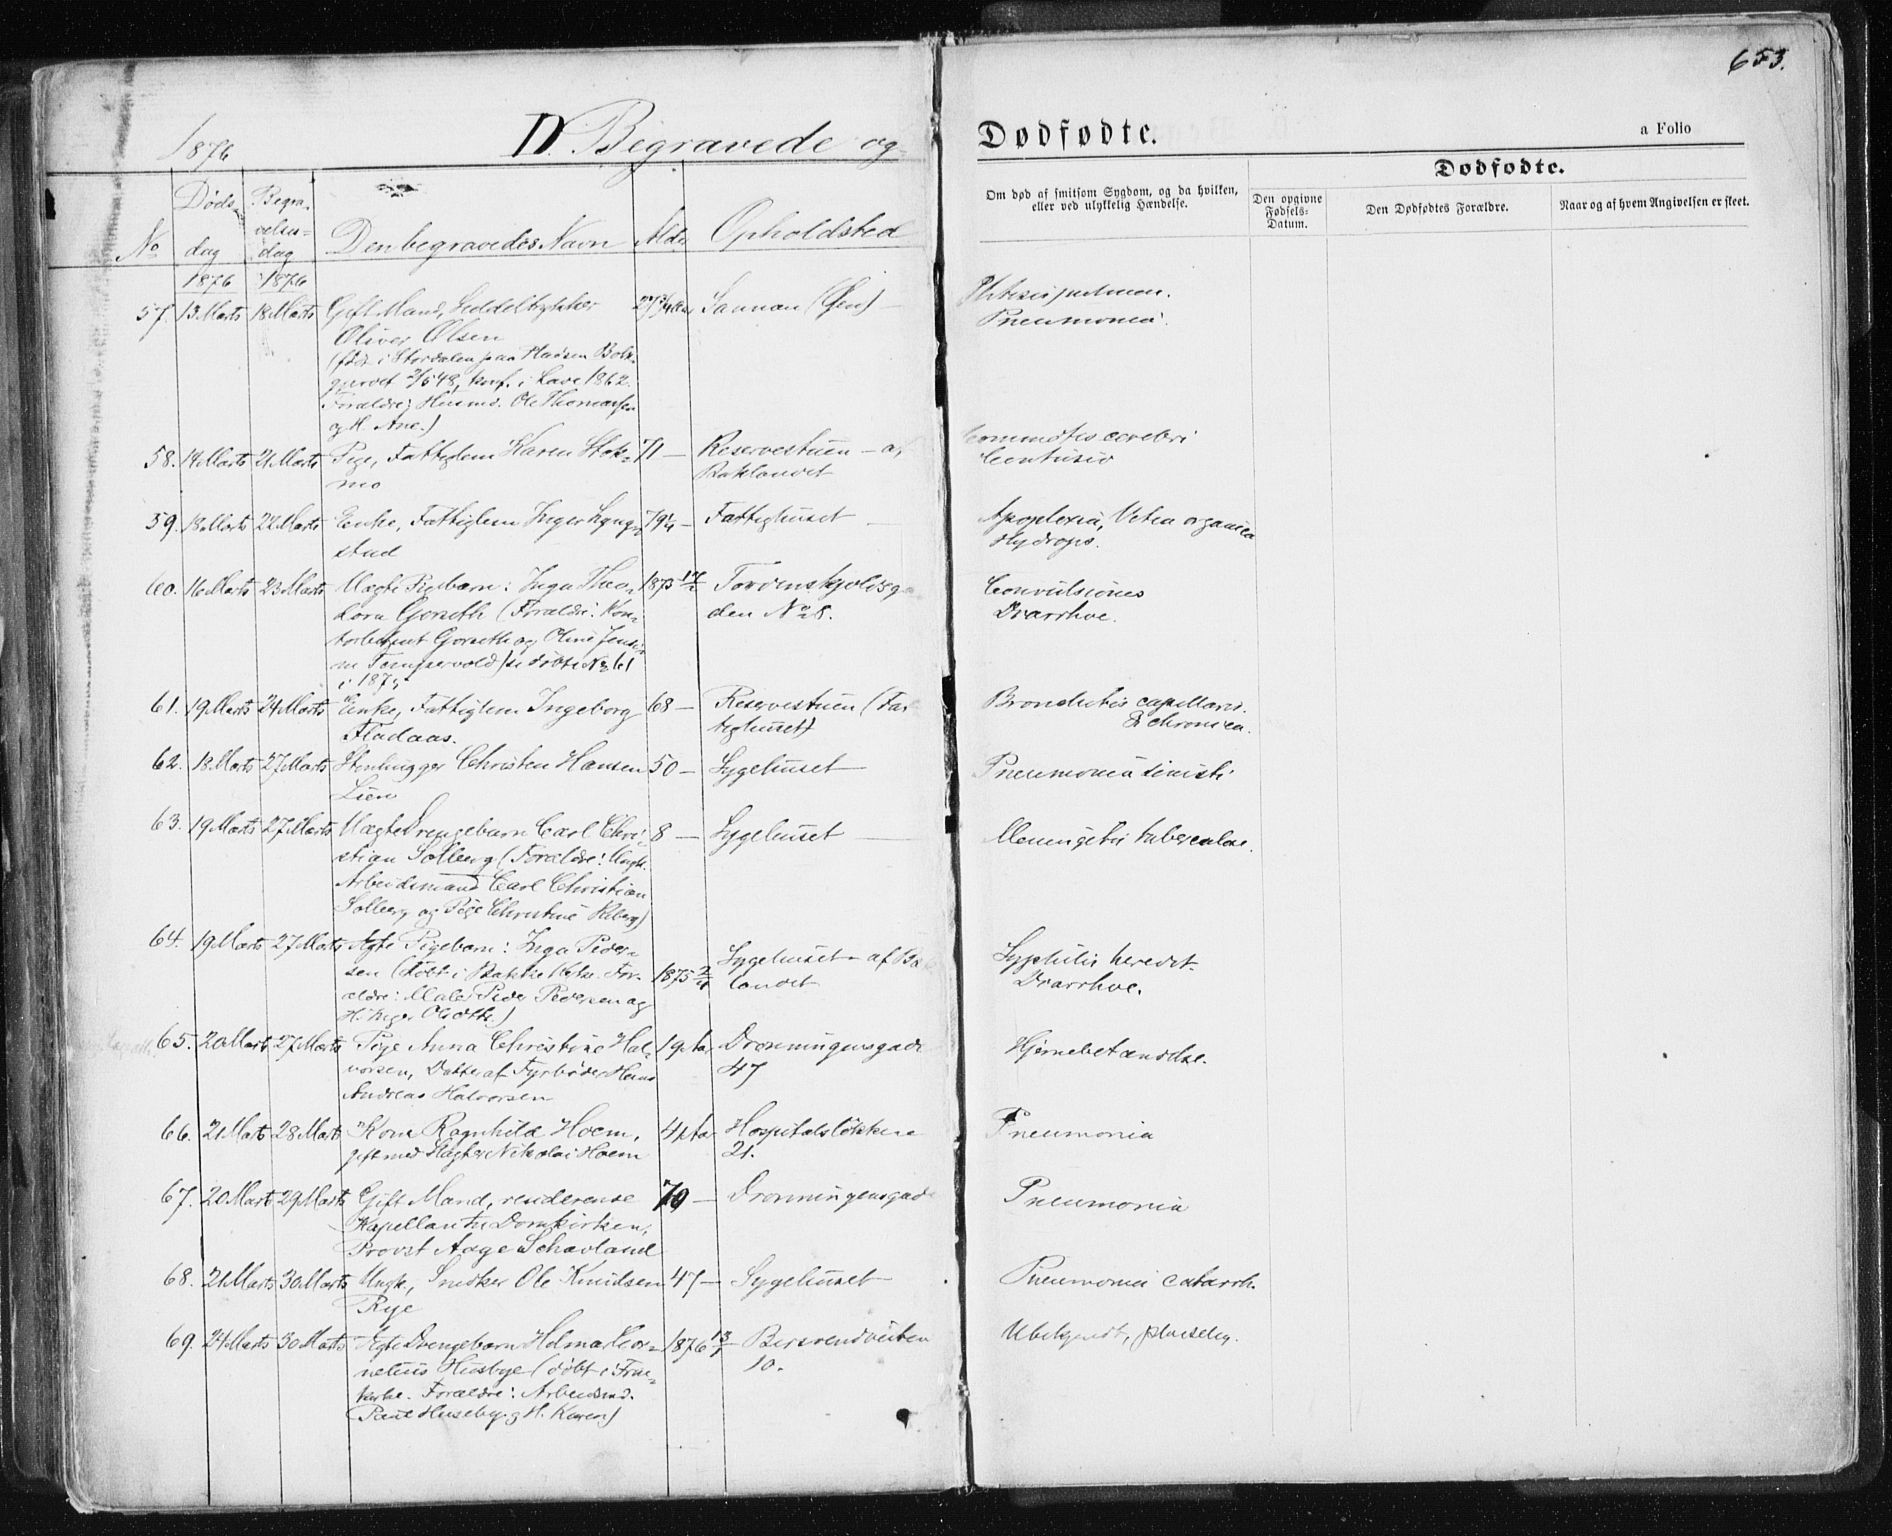 653.
1876
D. Begravede og
Dødfødte.
a Folio
No
Døds
dag
Begra-
velses-
dag
Den begravedes Navn
Alder
Opholdsted
Om død af smitsom Sygdom, og da hvilken,
eller ved ulykkelig Hændelse.
Dødfødte.
Den opgivne
Fødsels-
Datum.
Den Dødfødtes Forældre.
Naar og af hvem Angivelsen er skeet.
1876 1876
57. 13 Marts 18 Marts Gift Mand, Seddeltrykker
Oliver Olsen
(født i Stordalen paa Pladsen
1848, konf. i Lave 1862.
Forældre: Husmd. Ole Thomassen
og H. Ane.)
Sannan (Øen)
Phtisis pulmon.
Pneumonia.
58. 14 Marts 21 Marts Pige, Fattiglem Karen Stok-
mo
71 — Reservestuen — af
Baklandet
Commotio cerebri
Contusio
59. 18 Marts 22 Marts Enke, Fattiglem Inger Lyng-
stad
79¼ — Fattighuset
Apoplexia, Vitia organica
Hydrops.
60. 16 Marts 23 Marts Uægte Pigebarn: Inga Theo-
dora Gorseth (Forældre: Kon-
torbetjent Gorseth og Oline Jensine
Tempervold) se døbte No 61
i 1873
1873 Tordenskjoldsga-
den No 8.
Convulsiones
Diarrhoe.
61. 19 Marts 24 Marts Enke, Fattiglem Ingeborg
Fladaas.
68 — Reservestuen (Fat-
tighuset)
Bronchitis capillaris.
& chronica.
62. 18 Marts 27 Marts Stenhugger Christen Hansen
Lien
50 — Sygehuset
Pneumonia sinistr
63. 19 Marts 27 Marts Uægte Drengebarn Carl Chri-
stian Solberg (Forældre: Ungk.
Arbeidsmand Carl Christian
Solberg og Pige Christine Viberg)
8 — Sygehuset
Meningitis tuberculose.
64. 19 Marts 27 Marts Ægte Pigebarn: Inga Peder-
sen (døbt i Bakke Kirke. For-
ældre: Maler Peder Pedersen og
H. Inger Olsdtr.)
1875 2/4 Sygehuset — af Bak-
landet
Syphilis heredit.
Diarrhoe.
65. 20 Marts 27 Marts Pige Anna Christine Hal-
vorsen, Datter af Fyrbøder Hans
Andreas Halvorsen
19 Aar Dronningensgade
47
Hjernebetændelse.
66. 21 Marts 28 Marts Kone Ragnhild Hoem,
gift med Slagter Nikolai Hoem
Hospitalsløkken
21.
Pneumonia
67. 20 Marts 29 Marts Gift Mand, residerende
Kapellan til Domkirken,
Provst Aage Schavland
70 — Dronningensgade
Pneumonia
68. 21 Marts 30 Marts Ungk., Snedker Ole Knudsen
Rye
47 — Sygehuset
Pneumonia catarrh.
69. 24 Marts 30 Marts Ægte Drengebarn Helmar Cor-
nelius Husbye (døbt i Frue
Kirke. Forældre: Arbeidsmd.
Paul Huseby og H. Karen)
1876 13/1 Bersvendveiten
10.
Ubekjendt, pludselig.